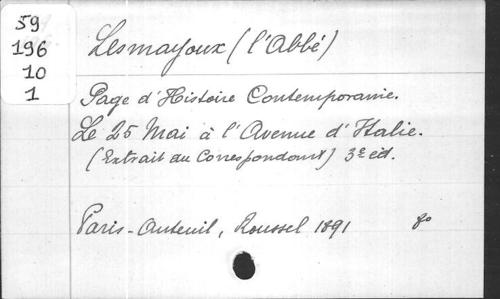 59
196
10
1
Lesmayoux (l'Abbé)
Page d'Histoire Contemporanie.
Le 25 Mai à l'Avenue d'Italie.
(Extrait du Correspondant) 3e éd.
Paris-Auteuil, Roussel 1891 8o